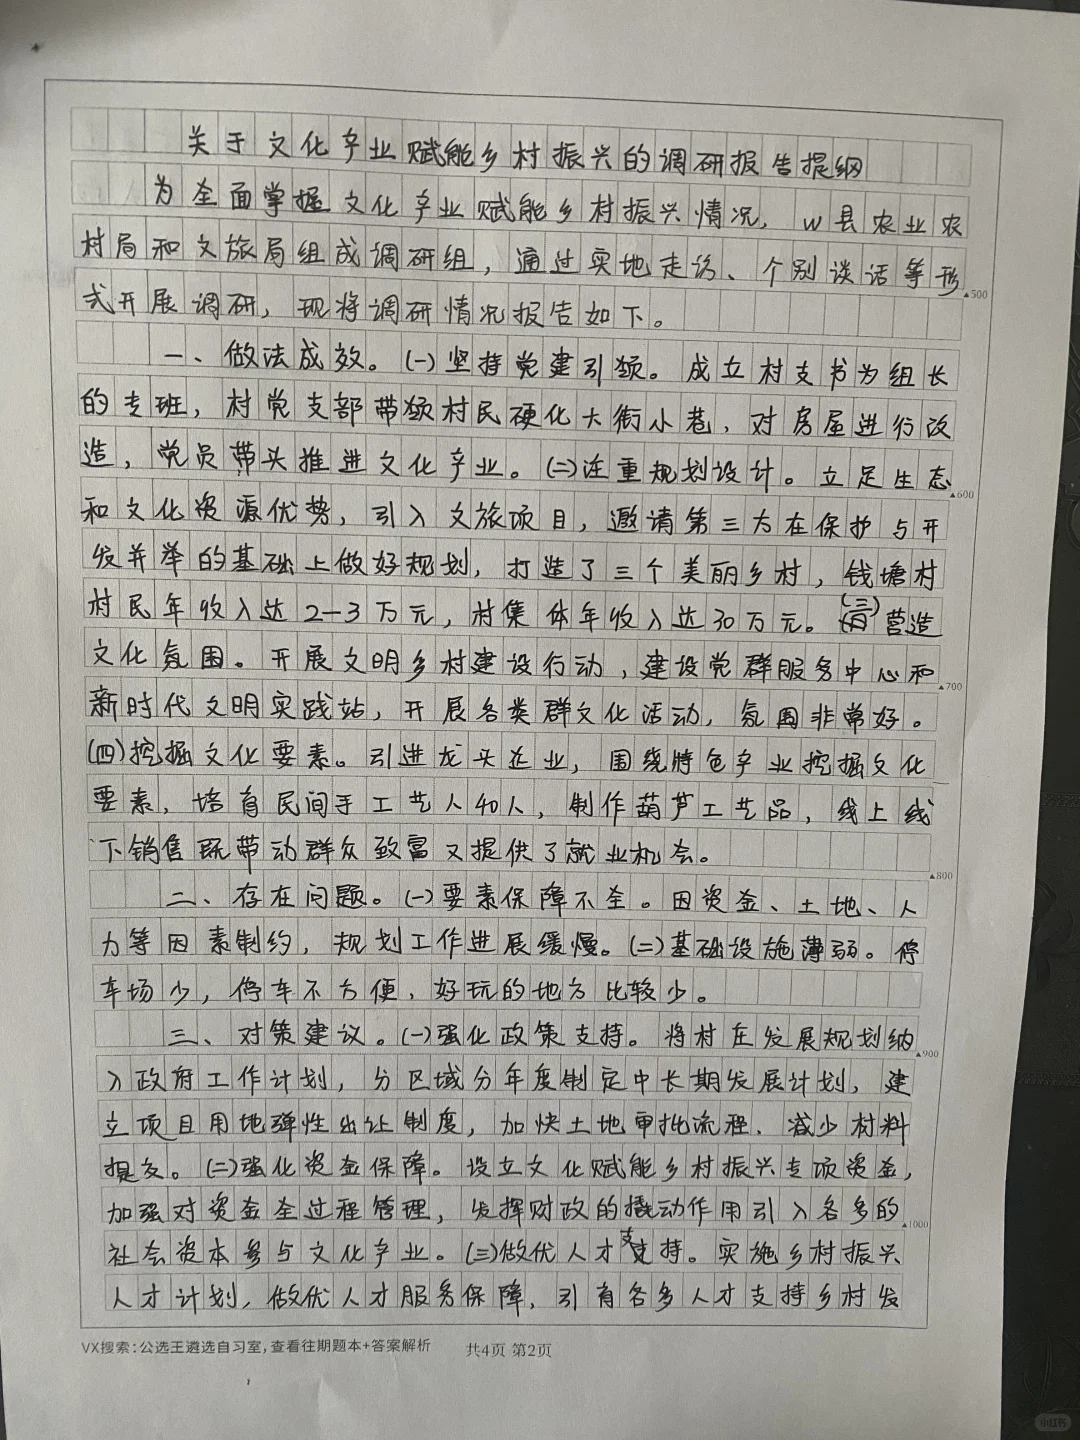 关于文化产业赋能乡村振兴的调研报告提纲
为全面掌握文化产业赋能乡村振兴情况，W县农业农
村局和文旅局组成调研组，通过实地走访、个别谈话等形
▲500
式开展调研，现将调研情况报告如下。
一、做法成效。(一)坚持党建引领。成立村支书为组长
的专班，村党支部带领村民硬化大街小巷，对房屋进行改
造，党员带头推进文化产业。(二)注重规划设计。立足生态
▲600
和文化资源优势，引入文旅项目，邀请第三方在保护与开
发并举的基础上做好规划，打造了三个美丽乡村，钱塘村
村民年收入达2—3万元，村集体年收入达30万元。(三)营造
文化氛围。开展文明乡村建设行动，建设党群服务中心和
▲700
新时代文明实践站，开展各类群文化活动，氛围非常好。
(四)挖掘文化要素。引进龙头企业，围绕特色产业挖掘文化
要素，培育民间手工艺人40人，制作葫芦工艺品，线上线
下销售既带动群众致富又提供了就业机会。
▲800
二、存在问题。(一)要素保障不全。因资金、土地、人
力等因素制约，规划工作进展缓慢。(二)基础设施薄弱。停
车场少，停车不方便，好玩的地方比较少。
三、对策建议。(一)强化政策支持。将村庄发展规划纳
▲900
入政府工作计划，分区域分年度制定中长期发展计划，建
立项目用地弹性出让制度，加快土地审批流程，减少材料
提交。(二)强化资金保障。设立文化赋能乡村振兴专项资金，
加强对资金全过程管理，发挥财政的撬动作用引入各多的
▲1000
社会资本参与文化产业。(三)做优人才支持。实施乡村振兴
人才计划，做优人才服务保障，引育各多人才支持乡村发
VX搜索：公选王遴选自习室，查看往期题本+答案解析 共4页 第2页
小红书